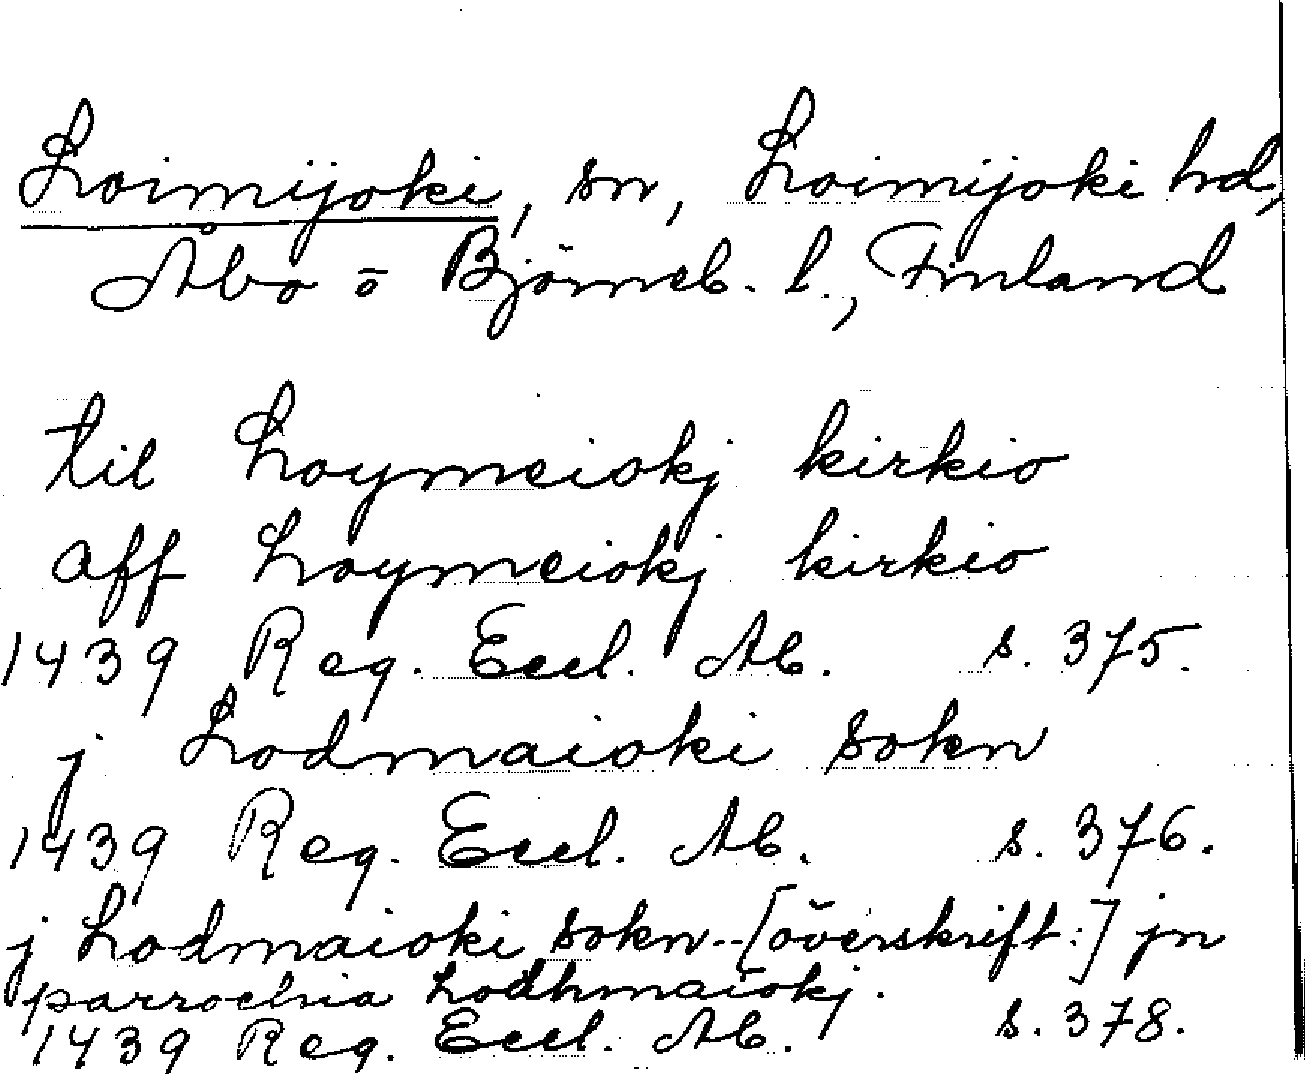 Loimijoki, sn, Loimijoki hd,
Åbo o Björneb. l., Finland
til Loymeiokj kirkio
aff Loymeiokj kirkio
1439 Reg. Eccl. Ab. s. 375.
j Lodmaioki sokn
1439 Reg. Eccl. Ab. s. 376.
j Lodmaioki sokn.. [överskrift:] jn
parrochia Lodhmaiokj.
1439 Reg. Eccl. Ab. s. 378.